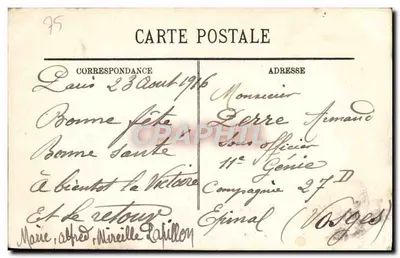 75
CARTE POSTALE
CORRESPONDANCE
Paris 23 Aout 1916
Bonne fête
Bonne santé
à bientot la Victoire
Et le retour
Marie, Alfred, Mireille Papillon
ADRESSE
Monsieur
Perre Armand
Sous officier
11e Génie
Compagnie 27 D
Epinal (Vosges)
CPAPHIL